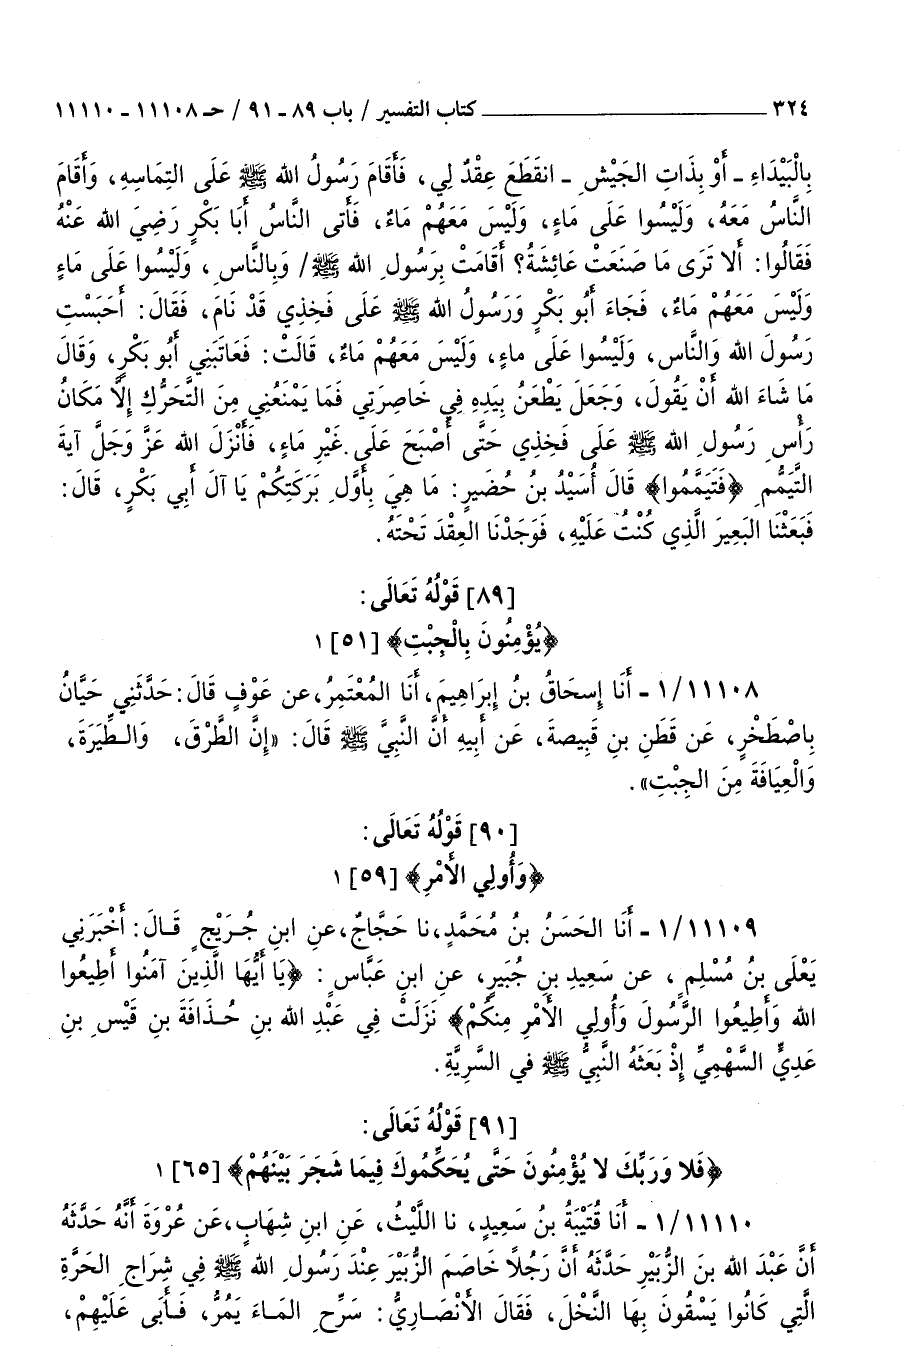 ٣٢٤ ـــــــــــــــ كتاب التفسير / باب ٨٩ ـ ٩١ / حـ ١١١٠٨ ـ ١١١١٠
بِالْبَيْدَاءِ ـ أَوْ بِذَاتِ الجَيْشِ ـ انقَطَعَ عِقْدٌ لِي، فَأَقَامَ رَسُولُ الله ﷺ عَلَى التِمَاسِهِ، وَأَقَامَ
النَّاسُ مَعَهُ، وَلَيْسُوا عَلَى مَاءٍ، وَلَيْسَ مَعَهُمْ مَاءٌ، فَأَتى النَّاسُ أَبَا بَكْرٍ رَضِيَ الله عَنْهُ
فَقَالُوا: أَلا تَرَى مَا صَنَعَتْ عَائِشَةُ؟ أَقَامَتْ بِرَسُولِ الله ﷺ/ وَبِالنَّاسِ، وَلَيْسُوا عَلَى مَاءٍ
وَلَيْسَ مَعَهُمْ مَاءٌ، فَجَاءَ أَبُو بَكْرٍ وَرَسُولُ الله ﷺ عَلَى فَخِذِي قَدْ نَامَ، فَقَالَ: أَحَبَسْتِ
رَسُولَ الله وَالنَّاس، وَلَيْسُوا عَلَى ماءٍ، وَلَيْسَ مَعَهُمْ مَاءٌ، قَالَتْ: فَعَاتَبَنِي أَبُو بَكْرٍ، وَقَالَ
مَا شَاءَ الله أَنْ يَقُولَ، وَجَعَلَ يَطْعَنُ بِيَدِهِ فِي خَاصِرَتِي فَمَا يَمْنَعُنِي مِنَ التَّحَرُّكِ إِلَّا مَكَانُ
رَأْسِ رَسُولِ الله ﷺ عَلَى فَخِذِي حَتَّى أَصْبَحَ عَلَى غَيْرِ مَاءٍ، فَأَنْزَلَ الله عَزَّ وَجَلَّ آيةَ
التَّيَمُّمِ ﴿فَتَيَمَّمُوا﴾ قَالَ أُسَيْدُ بنُ حُضَيرٍ: مَا هِيَ بِأَوَّلِ بَرَكَتِكُمْ يَا آلَ أَبِي بَكْرٍ، قَالَ:
فَبَعَثْنَا البَعِيرَ الَّذِي كُنْتُ عَلَيْهِ، فَوَجَدْنَا العِقْدَ تَحْتَهُ.
[٨٩] قَوْلُهُ تَعَالَى:
﴿يُؤْمِنُونَ بِالْجِبْتِ﴾ [٥١] ١
١١١٠٨/ ١ ـ أَنَا إِسحَاقُ بنُ إِبرَاهِيمَ، أَنَا المُعْتَمِرُ، عن عَوْفٍ قَالَ: حَدَّثَنِي حَيَّانُ
بِاصْطَخْرٍ، عَن قَطَنِ بنِ قَبِيصةَ، عَن أَبِيهِ أَنَّ النَّبِيَّ ﷺ قَالَ: «إِنَّ الطَّرْقَ، وَالـطِّيَرَةَ،
وَالْعِيَافَةَ مِنَ الجِبْتِ».
[٩٠] قَوْلُهُ تَعَالَى:
﴿وَأُولِي الأَمْرِ﴾ [٥٩] ١
١١١٠٩/ ١ ـ أَنَا الحَسَنُ بنُ مُحَمَّدٍ، نا حَجَّاجٌ، عَنِ ابنِ جُـرَيْجٍ قَـالَ: أَخْبَرَنِي
يَعْلَى بنُ مُسْلِمٍ، عن سَعِيدِ بنِ جُبَيرٍ، عَنِ ابنِ عَبَّاسٍ: ﴿يَا أَيُّهَا الَّذِينَ آمَنُوا أَطِيعُوا
الله وَأَطِيعُوا الرَّسُولَ وَأُولِي الأَمْرِ مِنكُمْ﴾ نَزَلَتْ فِي عَبْدِ الله بنِ حُـذَافَةَ بنِ قَيْسِ بنِ
عَدِيٍّ السَّهْمِيِّ إِذْ بَعَثَهُ النَّبِيُّ ﷺ في السَّرِيَّةِ.
[٩١] قَوْلُهُ تَعَالَى:
﴿فَلا وَرَبِّكَ لا يُؤْمِنُونَ حَتَّى يُحَكِّمُوكَ فِيمَا شَجَرَ بَيْنَهُمْ﴾ [٦٥] ١
١١١١٠/ ١ ـ أَنَا قُتَيْبَةُ بنُ سَعِيدٍ، نا اللَّيْثُ، عَنِ ابنِ شِهَابٍ، عَن عُرْوَةَ أَنَّهُ حَدَّثَهُ
أَنَّ عَبْدَ الله بنَ الزُّبَيْرِ حَدَّثَهُ أَنَّ رَجُلاً خَاصَمَ الزُّبَيْرَ عِنْدَ رَسُولِ الله ﷺ فِي شِرَاجِ الحَرَّةِ
الَّتِي كَانُوا يَسْقُونَ بِهَا النَّخْلَ، فَقَالَ الأَنْصَـارِيُّ: سَرِّحِ المَـاءَ يَمُرُّ، فَـأَبَى عَلَيْهِمْ،